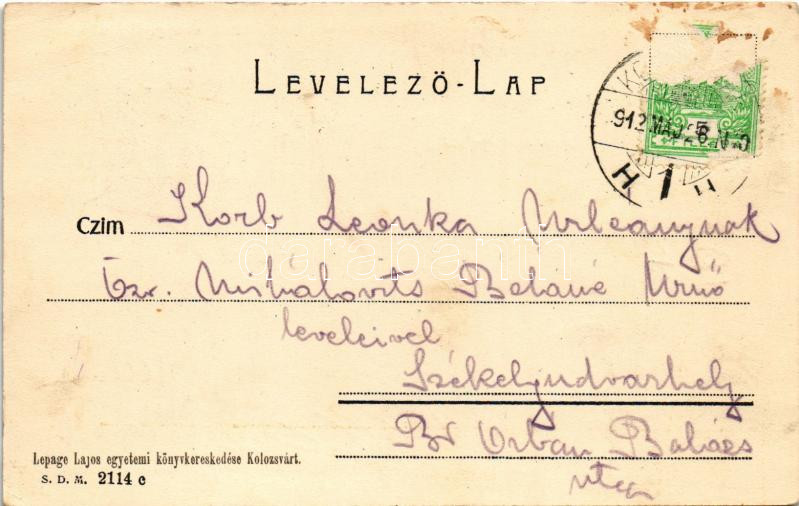 LEVELEZÖ-LAP
912 MÁJ 26
Czim Korb Leonka Urleánynak
Özv. Mihalovits Beláné Urnő
leveleivel
Székelyudvarhely
Br Orban Balázs
utca
Lepage Lajos egyetemi könyvkereskedése Kolozsvárt.
S. D. M. 2114 c
darabanth